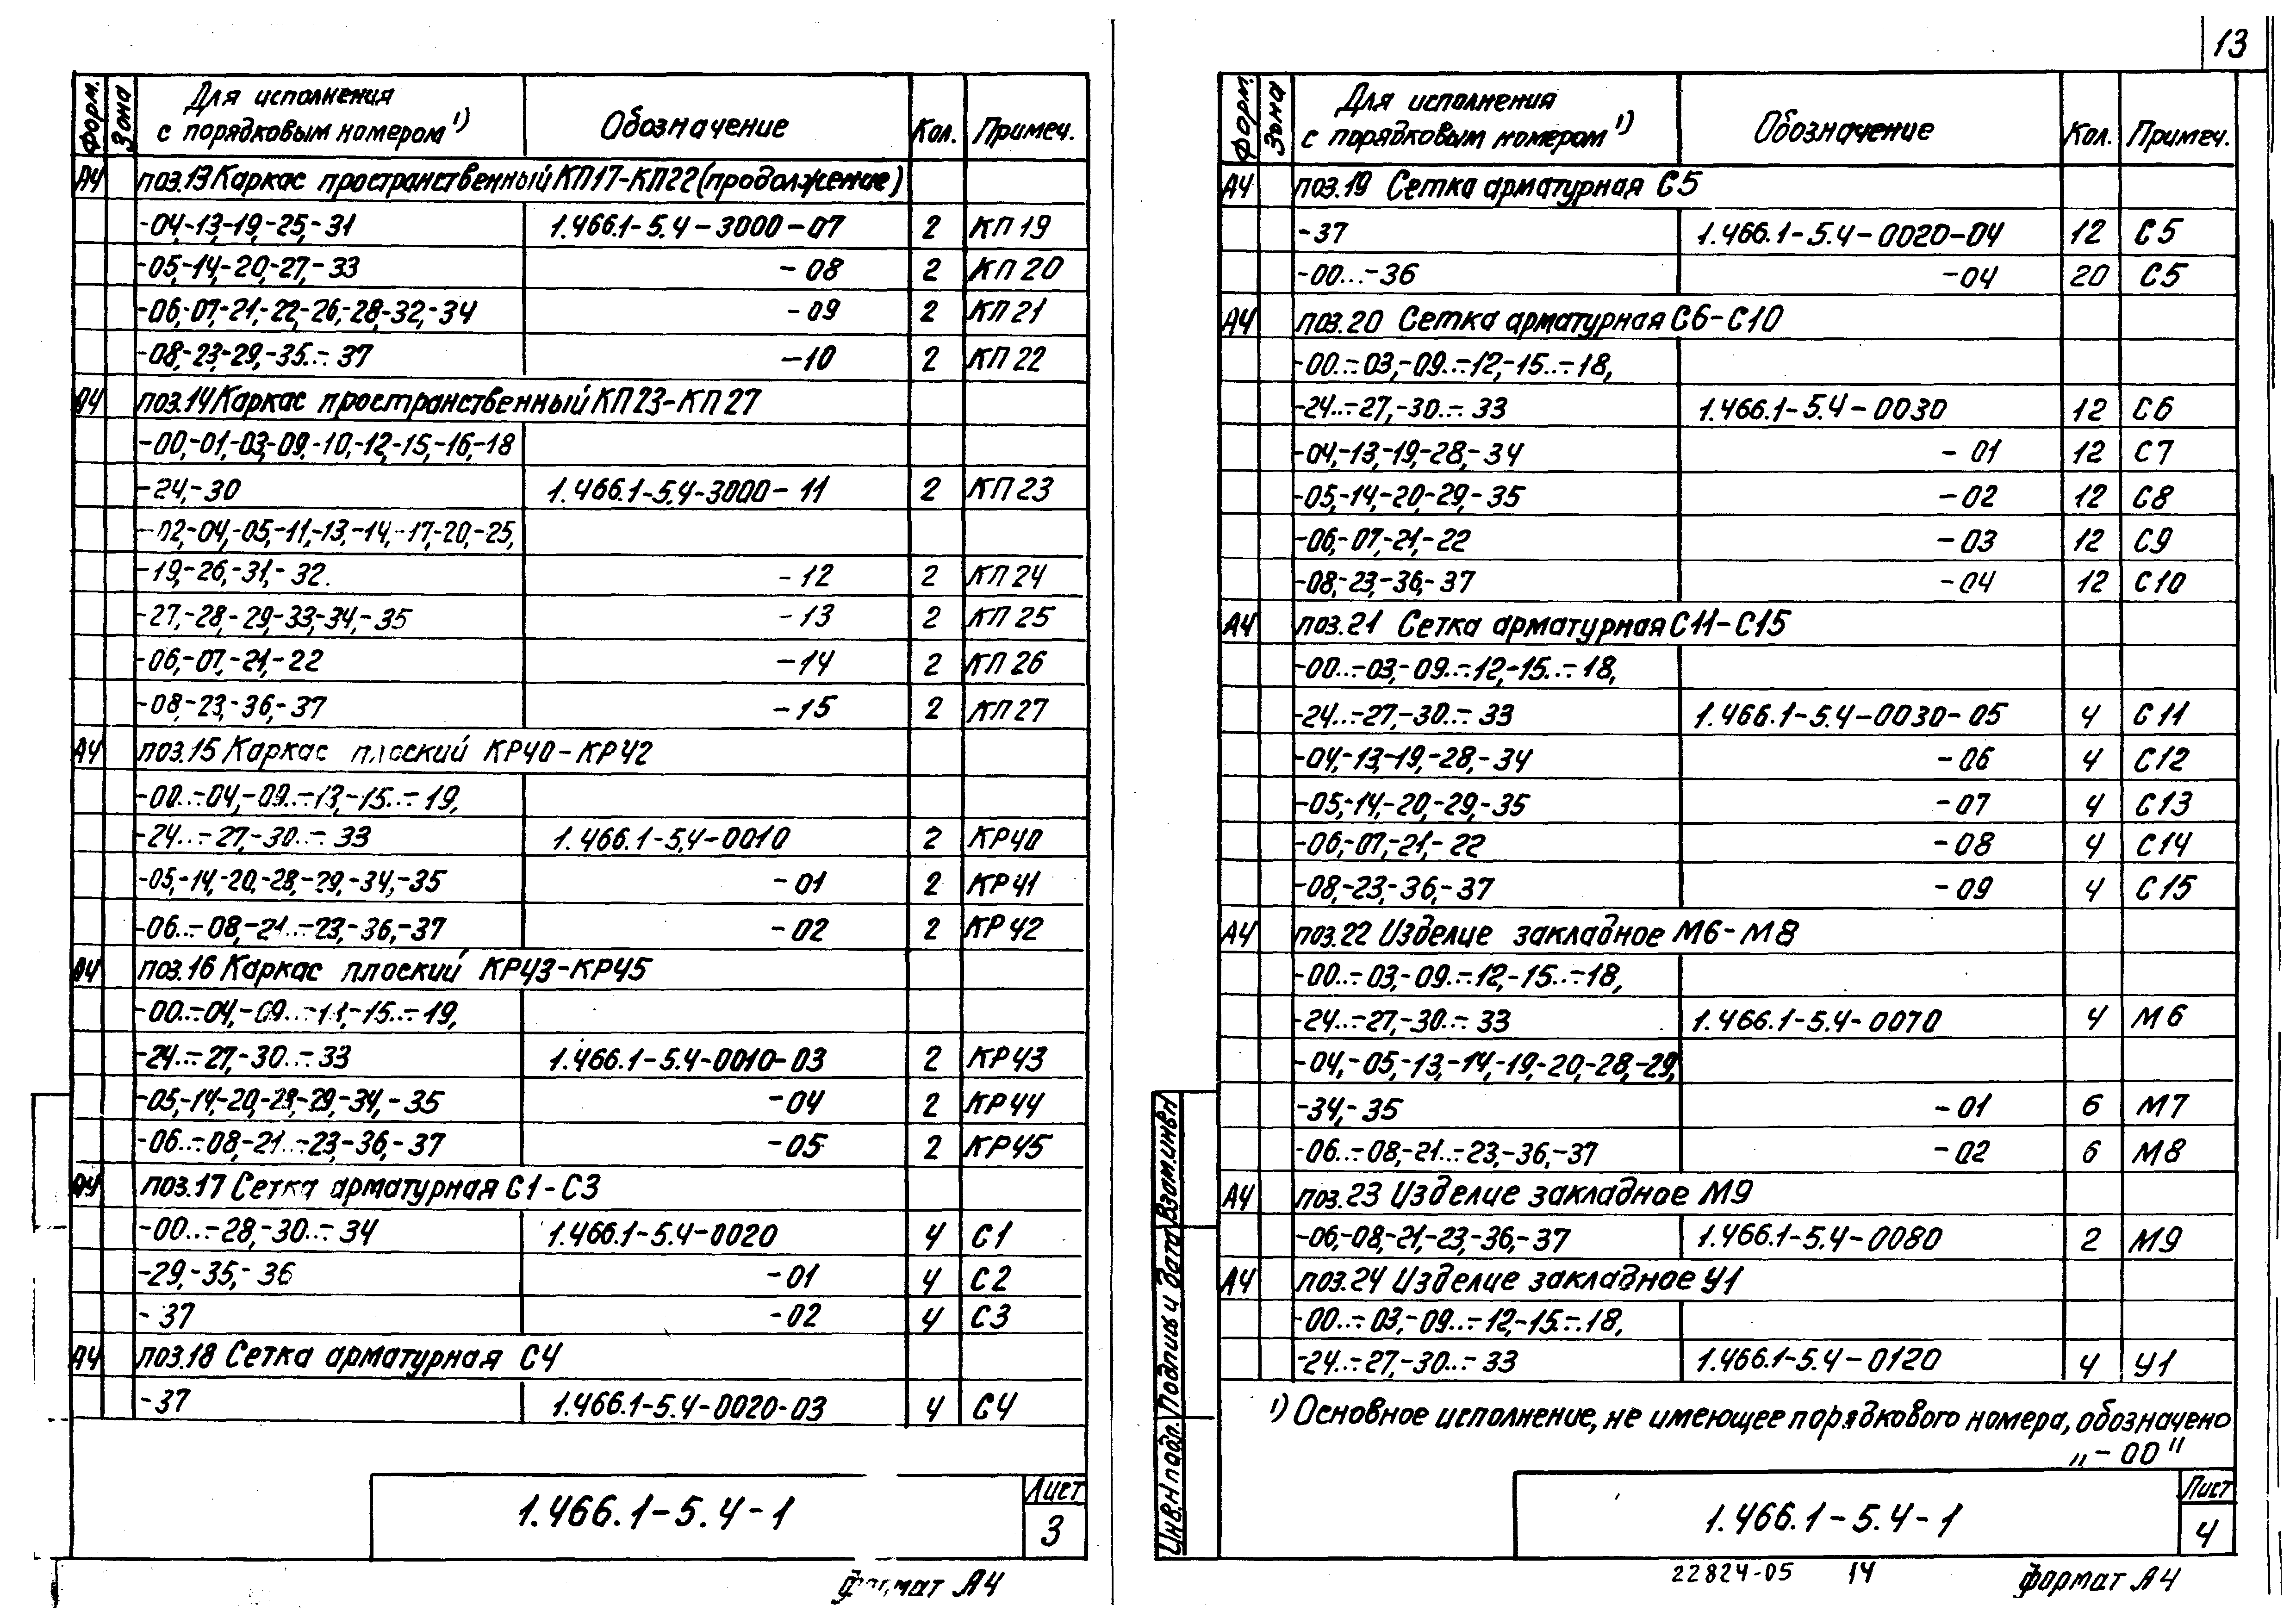 13
Форм. Зона Для исполнения с порядковым номером ¹) Обозначение Кол. Примеч.
А4 поз.13 Каркас пространственный КП17-КП22 (продолжение)
-04,-13,-19,-25,-31 1.466.1-5.4-3000-07 2 КП19
-05,-14,-20,-27,-33 -08 2 КП20
-06,-07,-21,-22,-26,-28,-32,-34 -09 2 КП21
-08,-23,-29,-35..-37 -10 2 КП22
А4 поз.14 Каркас пространственный КП23-КП27
-00,-01,-03,-09,-10,-12,-15,-16,-18
-24,-30 1.466.1-5.4-3000-11 2 КП23
-02,-04,-05,-11,-13,-14,-17,-20,-25,
-19,-26,-31,-32. -12 2 КП24
-27,-28,-29,-33,-34,-35 -13 2 КП25
-06,-07,-21,-22 -14 2 КП26
-08,-23,-36,-37 -15 2 КП27
А4 поз.15 Каркас плоский КР40-КР42
-00..-04,-09..-13,-15..-19,
-24..-27,-30..-33 1.466.1-5.4-0010 2 КР40
-05,-14,-20,-28,-29,-34,-35 -01 2 КР41
-06..-08,-21..-23,-36,-37 -02 2 КР42
А4 поз.16 Каркас плоский КР43-КР45
-00..-04,-09..-11,-15..-19,
-24..-27,-30..-33 1.466.1-5.4-0010-03 2 КР43
-05,-14,-20,-28,-29,-34,-35 -04 2 КР44
-06..-08,-21..-23,-36,-37 -05 2 КР45
А4 поз.17 Сетка арматурная С1-С3
-00..-28,-30..-34 1.466.1-5.4-0020 4 С1
-29,-35,-36 -01 4 С2
-37 -02 4 С3
А4 поз.18 Сетка арматурная С4
-37 1.466.1-5.4-0020-03 4 С4
1.466.1-5.4-1 Лист 3
Формат А4
Форм. Зона Для исполнения с порядковым номером ¹) Обозначение Кол. Примеч.
А4 поз.19 Сетка арматурная С5
-37 1.466.1-5.4-0020-04 12 С5
-00..-36 -04 20 С5
А4 поз.20 Сетка арматурная С6-С10
-00..-03,-09..-12,-15..-18,
-24..-27,-30..-33 1.466.1-5.4-0030 12 С6
-04,-13,-19,-28,-34 -01 12 С7
-05,-14,-20,-29,-35 -02 12 С8
-06,-07,-21,-22 -03 12 С9
-08,-23,-36,-37 -04 12 С10
А4 поз.21 Сетка арматурная С11-С15
-00..-03,-09..-12,-15..-18,
-24..-27,-30..-33 1.466.1-5.4-0030-05 4 С11
-04,-13,-19,-28,-34 -06 4 С12
-05,-14,-20,-29,-35 -07 4 С13
-06,-07,-21,-22 -08 4 С14
-08,-23,-36,-37 -09 4 С15
А4 поз.22 Изделие закладное М6-М8
-00..-03,-09..-12,-15..-18,
-24..-27,-30..-33 1.466.1-5.4-0070 4 М6
-04,-05,-13,-14,-19,-20,-28,-29,
-34,-35 -01 6 М7
-06..-08,-21..-23,-36,-37 -02 6 М8
А4 поз.23 Изделие закладное М9
-06,-08,-21,-23,-36,-37 1.466.1-5.4-0080 2 М9
А4 поз.24 Изделие закладное У1
-00..-03,-09..-12,-15..-18,
-24..-27,-30..-33 1.466.1-5.4-0120 4 У1
¹) Основное исполнение, не имеющее порядкового номера, обозначено
„-00"
Инв.N подл. Подпись и дата Взам.инв.N
1.466.1-5.4-1 Лист 4
22824-05 14 Формат А4